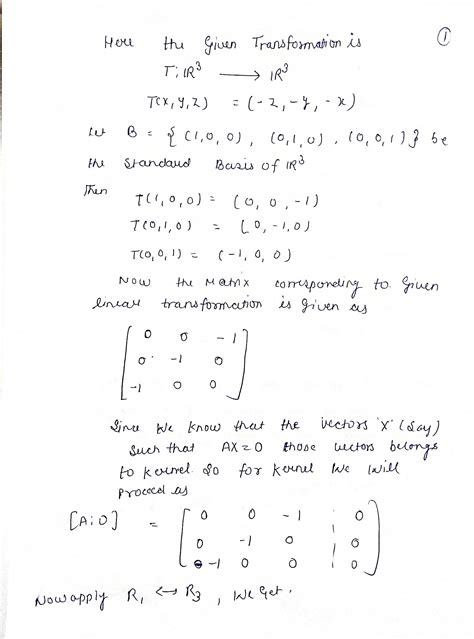 ①
Here the Given Transformation is
T: IR³ ⟶ IR³
T(x, y, z) = (-z, -y, -x)
Let B = { (1,0,0), (0,1,0), (0,0,1)} be
the Standard Basis of IR³
Then
T(1,0,0) = (0, 0, -1)
T(0,1,0) = (0, -1, 0)
T(0,0,1) = (-1, 0, 0)
Now the Matrix corresponding to Given
linear transformation is Given as
[ 0 0 -1
0 -1 0
-1 0 0 ]
Since We know that the vectors 'X' (Say)
such that AX = 0 those vectors belongs
to Kernel. So for Kernel We will
proceed as
[A:0] = [ 0 0 -1 ¦ 0
0 -1 0 ¦ 0
-1 0 0 ¦ 0 ]
Now apply R₁ ↔ R₃, We Get.